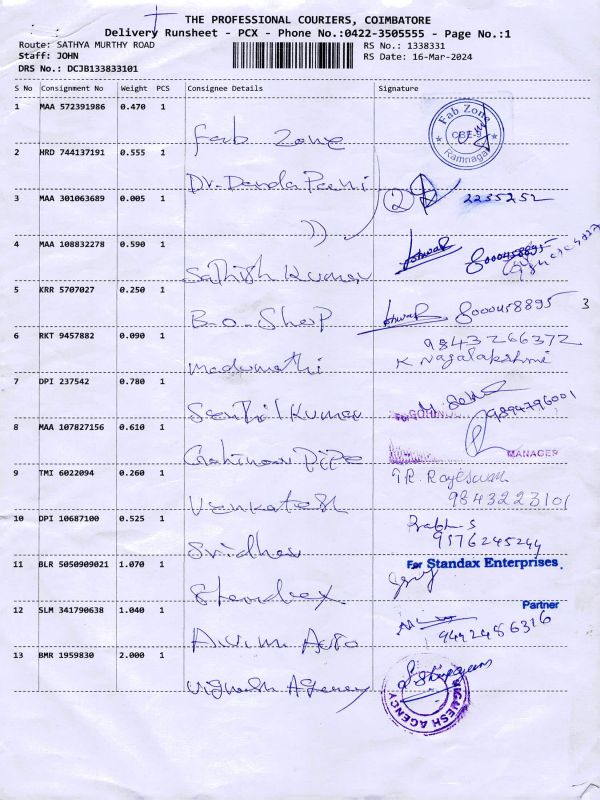 THE PROFESSIONAL COURIERS, COIMBATORE
Delivery Runsheet - PCX - Phone No.:0422-3505555 - Page No.:1
Route: SATHYA MURTHY ROAD RS No.: 1338331
Staff: JOHN RS Date: 16-Mar-2024
DRS No.: DCJB133833101
S No Consignment No Weight PCS Consignee Details Signature
1 MAA 572391986 0.470 1
Fab Zone Fab Zone CBE-9 Ramnagar
2 HRD 744137191 0.555 1
Dr. 2
3 MAA 301063689 0.005 1 2235252
))
4 MAA 108832278 0.590 1
Sathish Kumar 8000458895
5 KRR 5707027 0.250 1
B.O. Shop 8000458895 3
6 RKT 9457882 0.090 1 9843266372
Madumathi K Nagalakshmi
7 DPI 237542 0.780 1
Senthil Kumar 9894796001
8 MAA 107827156 0.610 1
Pipe MANAGER
9 TMI 6022094 0.260 1
Venkatesh 9843223101
10 DPI 10687100 0.525 1 Prabhu S
Sridhar 9376245244
11 BLR 5050909021 1.070 1 For Standax Enterprises.
Standax
12 SLM 341790638 1.040 1 Partner
Auto 9442486316
13 BMR 1959830 2.000 1
Vignesh Agency VIGNESH AGENCY